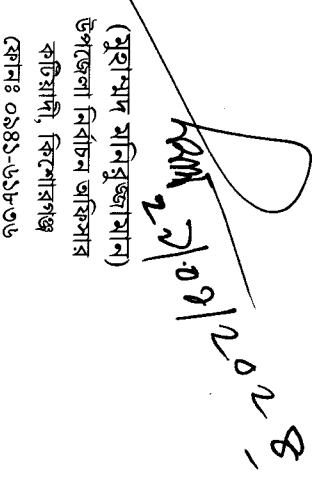 ২১/০৫/২০২৪
(মুহাম্মদ মনিরুজ্জামান)
উপজেলা নির্বাচন অফিসার
কটিয়াদী, কিশোরগঞ্জ
ফোনঃ ০৯৪১-৬১৮৩৬